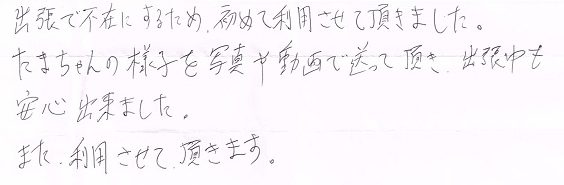 出張で不在にするため、初めて利用させて頂きました。
たまちゃんの様子を写真や動画で送って頂き、出張中も
安心出来ました。
また、利用させて、頂きます。